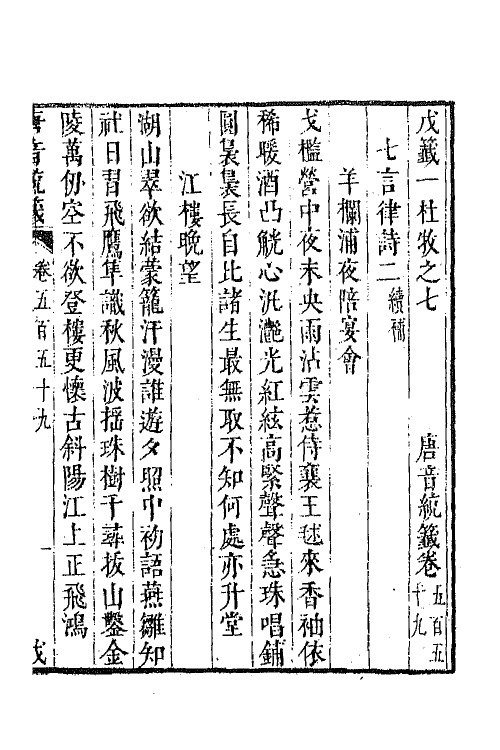 戊籤一杜牧之七　唐音統籤卷五百五十九
七言律詩二續補
羊欄浦夜陪宴會
戈檻營中夜未央雨沾雲惹侍襄王毬來香袖依
稀暖酒凸觥心汎灔光紅絃高緊聲聲急珠唱鋪
圓裊裊長自比諸生最無取不知何處亦升堂
江樓晚望
湖山翠欲結蒙籠汗漫誰遊夕照中初語燕雛知
社日習飛鷹隼識秋風波揺珠樹千尋拔山鑿金
陵萬仞空不欲登樓更懷古斜陽江上正飛鴻
唐音統籤　卷五百五十九　一　戊